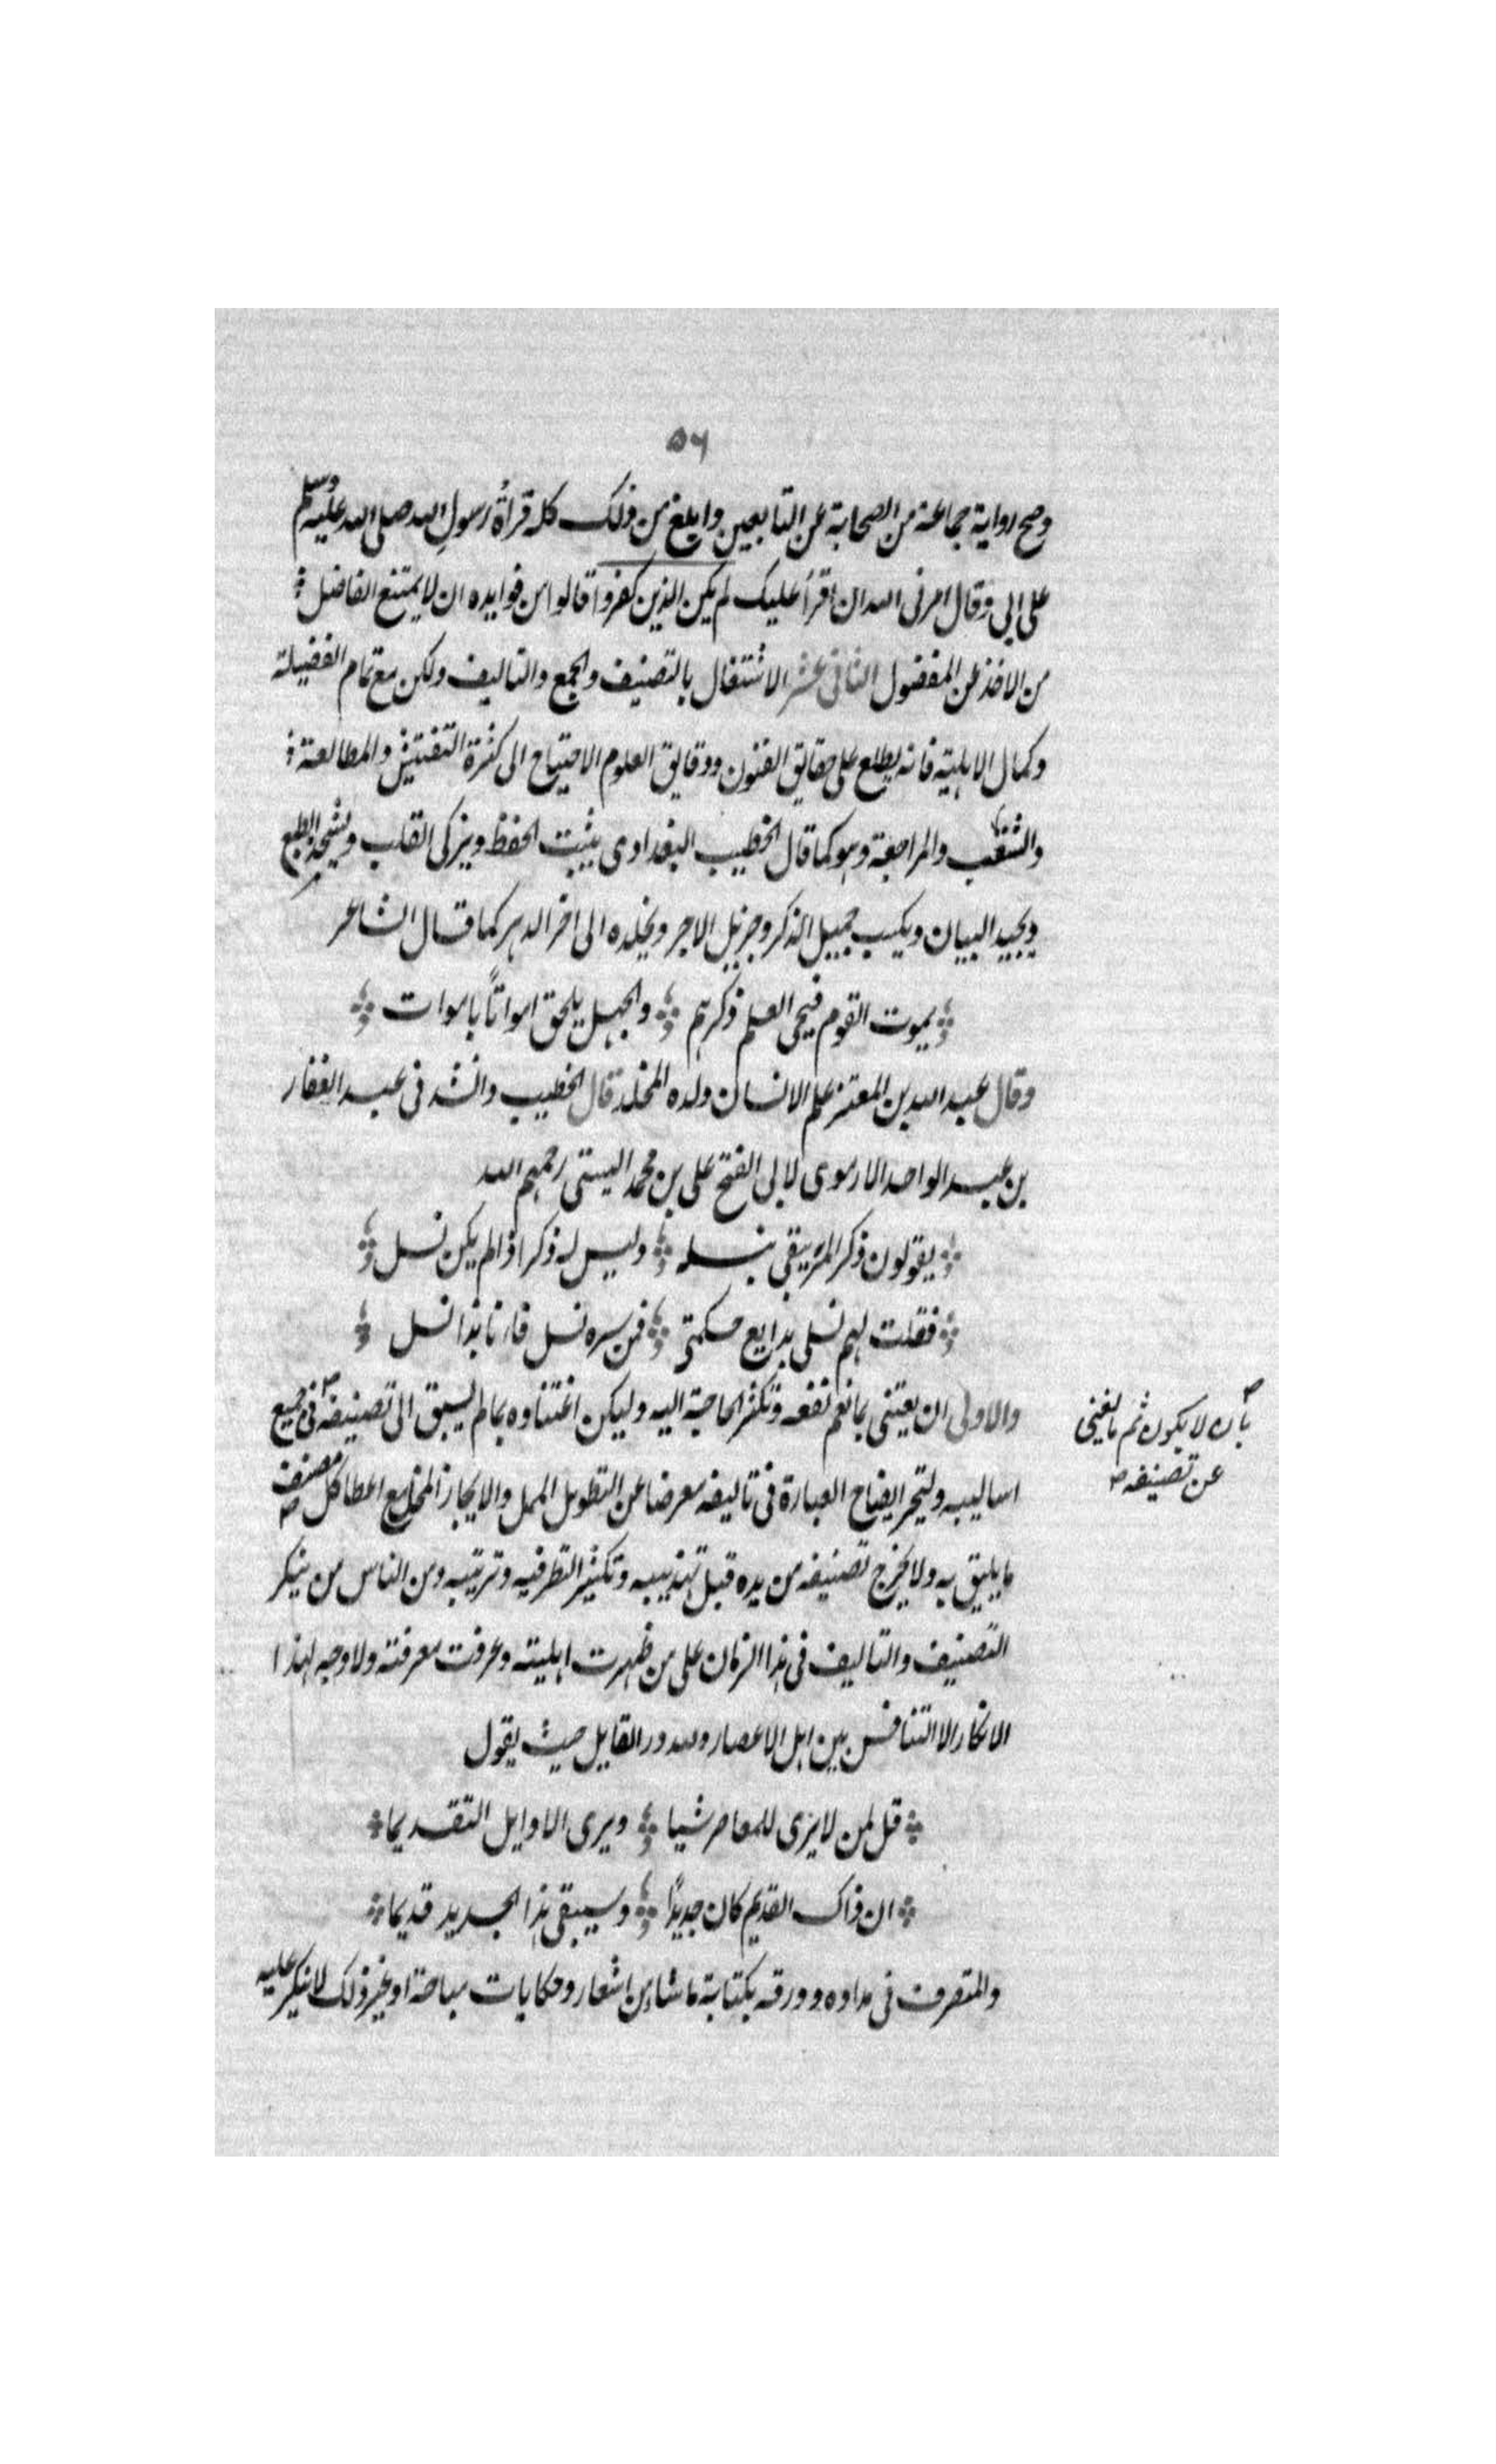 ٥٦
وصح رواية جماعة من الصحابة عن التابعين وابلغ من ذلك كله قرأة رسول الله صلى الله عليه وسلم
على ابي وقال امرني الله ان اقرأ عليك لم يكن الذين كفروا قالوا من فوايده ان لا يمتنع الفاضل
من الاخذ عن المفضول الثاني عشر الاشتغال بالتصنيف والجمع والتاليف ولكن مع تمام الفضيلة
وكمال الاهلية فانه يطلع على حقايق الفنون ودقايق العلوم الاحتياج الى كثرة التفتيش والمطالعة
والتنقيب والمراجعة وهو كما قال الخطيب البغدادي يثبت الحفظ ويزكى القلب ويشحذ الطبع
ويجيد البيان ويكسب جميل الذكر وجزيل الاجر ويخلده الى اخر الدهر كما قال الشاعر
يموت القوم فيحى العلم ذكرهم والجهل يلحق امواتاً باموات
وقال عبد الله بن المعتز علم الانسان ولده المخلد قال الخطيب وانشدني عبد الغفار
بن عبد الواحد الارموى لابى الفتح على بن محمد البستي رحمهم الله
يقولون ذكر المرء يبقى بنسله وليس له ذكر اذا لم يكن نسل
فقلت لهم نسلى بدايع حكمتي فمن سره نسل فانا بذا نسل
والاولى ان يعتنى بما نعم نفعه وتكثر الحاجة اليه وليكن اعتناوه بما لم يسبق الى تصنيفه في جميع
بأن لا يكون ثم ما يغنى
عن تصنيفه
اساليبه وليتحر ايضاح العبارة في تاليفه معرضا عن التطويل الممل والايجاز المخل مع اعطا كل مصنف
ما يليق به ولا يخرج تصنيفه من يده قبل تهذيبه وتكثير النظر فيه وترتيبه ومن الناس من ينكر
التصنيف والتاليف في هذا الزمان على من ظهرت اهليته وعرفت معرفته ولا وجه لهذا
الانكار الا التنافس بين اهل الاعصار ولله در القايل حيث يقول
قل لمن لا يرى للمعاصر شيا ويرى الاوايل التقديما
ان ذاك القديم كان جديدًا وسيبقى هذا الجديد قديما
والمتصرف في مداده وورقه بكتابة ما شاء من اشعار وحكايات مباحة او غير ذلك لا ينكر عليه